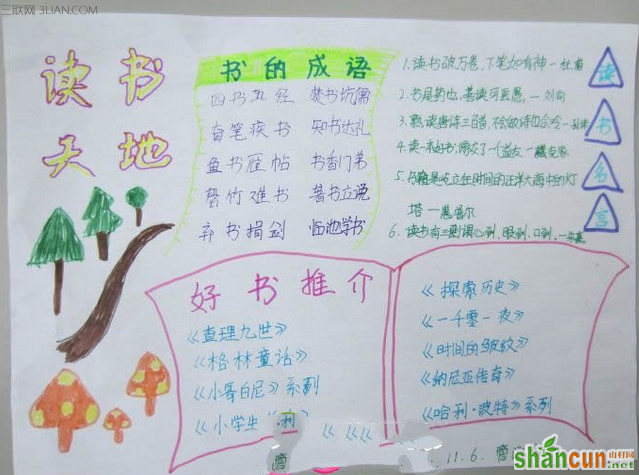 三联网 3LIAN.COM
读书
天地
书的成语
四书五经 焚书坑儒
奋笔疾书 知书达礼
鱼书雁帖 书香门第
罄竹难书 著书立说
弃书捐剑 临池学书
1. 读书破万卷，下笔如有神一杜甫
2. 书是药也，善读可医愚，一刘向
3. 熟读唐诗三百首，不会做诗也会吟一
4. 读一本好书，交了一个益友一臧克家
5. 书籍是屹立在时间的汪洋大海中的灯
塔 一惠普尔
6. 读书有三到心到，眼到，口到，一朱熹
读
书
名
言
好书推介
《查理九世》
《格林童话》
《小哥白尼》系列
《小学生
《探索历史》
《一千零一夜》
《时间的皱纹》
《纳尼亚传奇》
《哈利·波特》系列
11.6.
shancun